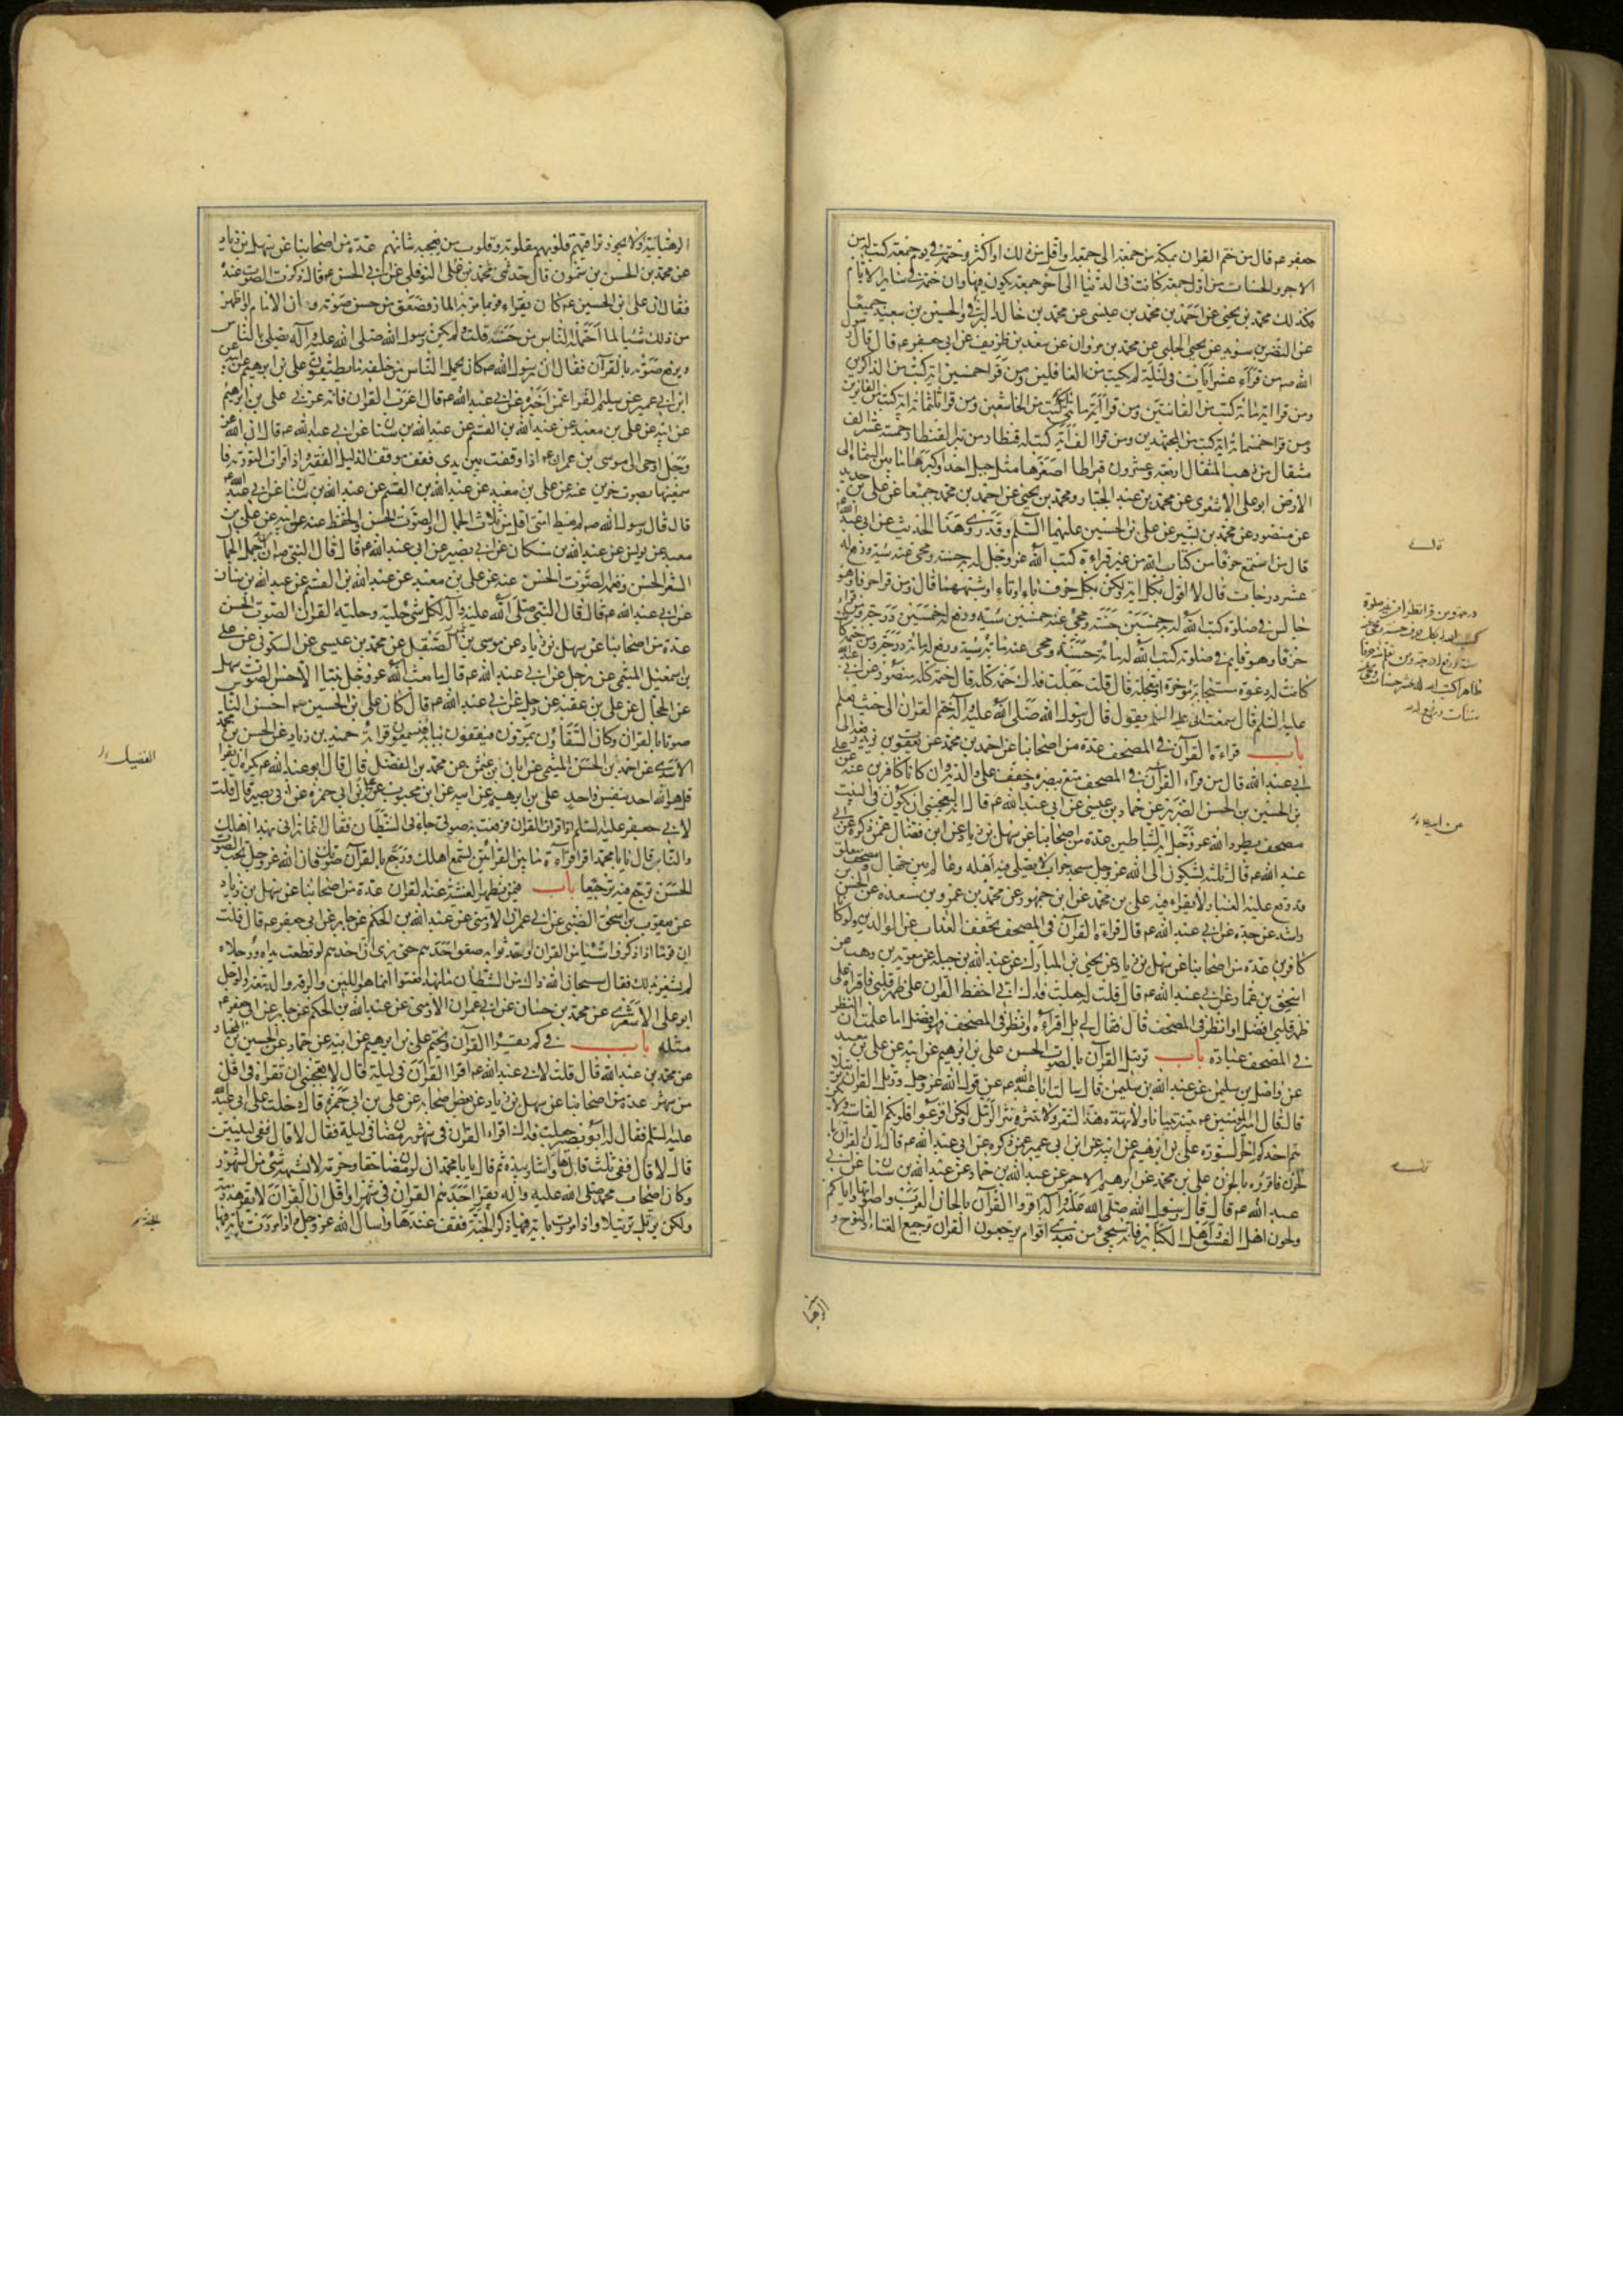 جعفر ع قال من ختم القران بمكة من جمعة الى جمعة او اقل من ذلك او اكثر وختمه في يوم جمعة كتب له من
الاجر والحسنات من اول جمعة كانت في الدنيا الى آخر جمعة تكون فيها وان ختمه في ساير الايام
فكذلك محمد بن يحيى عن احمد بن محمد بن عيسى عن محمد بن خالد البرقي والحسين بن سعيد جميعا
عن النضر بن سويد عن يحيى الحلبي عن محمد بن مروان عن سعد بن طريف عن ابي جعفر ع قال قال رسول
الله ص من قراء عشر آيات في ليلة لم يكتب من الغافلين ومن قرا خمسين اية كتب من الذاكرين
ومن قرا اية مائة كتب من القانتين ومن قرا مائتي آية كتب من الخاشعين ومن قرا ثلثمائة اية كتب من الفائزين
ومن قرا خمسمائة اية كتب من المجتهدين ومن قرا الف آية كتب له قنطار من تبر القنطار خمسة عشر الف
مثقال من ذهب المثقال اربعة وعشرون قيراطا اصغرها مثل جبل احد واكبرها ما بين السماء الى
الارض ابو علي الاشعري عن محمد بن عبد الجبار ومحمد بن يحيى عن احمد بن محمد جميعا عن علي بن حديد
عن منصور عن محمد بن بشير عن علي بن الحسين عليهما السلم وقد روى هذا الحديث عن ابي عبد الله ع
قال من استمع حرفا من كتاب الله من غير قراءة كتب الله عز وجل له حسنة ومحى عنه سيئة ورفع له
عشر درجات قال لا اقول بكل اية ولكن بكل حرف باء او تاء او شبههما قال ومن قرا حرفا وهو
جالس في صلوة كتب الله له خمسين حسنة ومحى عنه خمسين سيئة ورفع له خمسين درجة ومن قراء
حرفا وهو قايم في صلوته كتب الله له مائة حسنة ومحى عنه مائة سيئة ورفع له مائة درجة ومن ختمه
كانت له دعوة مستجابة مؤخرة او معجلة قال قلت جعلت فداك ختمه كله قال ختمه كله منصور عن ابي عبد الله
عليه السلم قال سمعت ابي عليه السلم يقول قال رسول الله صلى الله عليه وآله ختم القران الى حيث تعلم
باب قراءة القرآن في المصحف عدة من اصحابنا عن احمد بن محمد عن يعقوب بن يزيد
ابي عبد الله قال من قراء القرآن في المصحف متع ببصره وخفف على والديه وان كانا كافرين عنه عن علي
بن الحسين بن الحسن الضرير عن حماد بن عيسى عن ابي عبد الله ع قال انه ليعجبني ان يكون في البيت
مصحف يطرد الله عز وجل به الشياطين عدة من اصحابنا عن سهل بن زياد عن ابن فضال عمن ذكره عن ابي
عبد الله ع قال ثلثة يشكون الى الله عز وجل مسجد خراب لا يصلي فيه اهله وعالم بين جهال ومصحف معلق
قد وقع عليه الغبار لا يقراء فيه علي بن محمد عن ابن جمهور عن محمد بن عمرو بن مسعدة عن الحسن بن
راشد عن جده عن ابي عبد الله ع قال قراءة القرآن في المصحف تخفف العذاب عن الوالدين ولو كانا
كافرين عدة من اصحابنا عن سهل بن زياد عن يحيى بن المبارك عن عبد الله بن جبلة عن معوية بن وهب عن
اسحق بن عمار عن ابي عبد الله ع قال قلت له جعلت فداك اني احفظ القران على ظهر قلبي فاقراه على
ظهر قلبي افضل او انظر في المصحف قال فقال لي بل اقراه وانظر في المصحف فهو افضل اما علمت ان النظر
في المصحف عبادة باب ترتيل القرآن بالصوت الحسن علي بن ابرهيم عن ابيه عن علي بن معبد
عن واصل بن سليمن عن عبد الله بن سليمن قال سالت ابا عبد الله ع عن قول الله عز وجل ورتل القران ترتيلا
قال قال امير المؤمنين ع بينه تبيانا ولا تهذه هذ الشعر ولا تنثره نثر الرمل ولكن افزعوا قلوبكم القاسية ولا يكن
هم احدكم اخر السورة علي بن ابرهيم عن ابيه عن ابن ابي عمير عمن ذكره عن ابي عبد الله ع قال ان القران نزل
بالحزن فاقرؤه بالحزن علي بن محمد عن ابرهيم الاحمر عن عبد الله بن حماد عن عبد الله بن سنان عن ابي
عبد الله ع قال قال رسول الله صلى الله عليه وآله اقرؤا القرآن بالحان العرب واصواتها واياكم
ولحون اهل الفسق واهل الكبائر فانه سيجئ من بعدي اقوام يرجعون القران ترجيع الغناء والنوح و
الرهبا
عن ابيه
الرهبانية ولا يجوز تراقيهم قلوبهم مقلوبة وقلوب من يعجبه شانهم عدة من اصحابنا عن سهل بن زياد
عن محمد بن الحسن بن شمون قال حدثني محمد بن علي النوفلي عن ابي الحسن ع قال ذكرت الصوت عنده
فقال ان علي بن الحسين ع كان يقراء فربما مر به المار فصعق من حسن صوته وان الامام لو اظهر
من ذلك شيئا لما احتمله الناس من حسنه قلت ولم يكن رسول الله صلى الله عليه وآله يصلي بالناس
ويرفع صوته بالقرآن فقال ان رسول الله ص كان يحمل الناس من خلفه ما يطيقون علي بن ابرهيم عن ابيه عن
ابن ابي عمير عن سليم الفرا عمن اخبره عن ابي عبد الله ع قال اعرب القران فانه عربي علي بن ابرهيم
عن ابيه عن علي بن معبد عن عبد الله بن القسم عن عبد الله بن سنان عن ابي عبد الله ع قال ان الله عز
وجل اوحى الى موسى بن عمران ع اذا وقفت بين يدي فقف وقف الذليل الفقير واذا قرات التورية فا
سمعنيها بصوت حزين عنه عن علي بن معبد عن عبد الله بن القسم عن عبد الله بن سنان عن ابي عبد الله ع
قال قال رسول الله ص لم يعط امتي اقل من ثلاث الجمال والصوت الحسن والحفظ عنه عن ابيه عن علي بن
معبد عن يونس عن عبد الله بن مسكان عن ابي بصير عن ابي عبد الله ع قال قال النبي ص ان من اجمل الجمال
الشعر الحسن ونغمة الصوت الحسن عنه عن علي بن معبد عن عبد الله بن القسم عن عبد الله بن سنان
عن ابي عبد الله ع قال قال النبي صلى الله عليه وآله لكل شئ حلية وحلية القران الصوت الحسن
عدة من اصحابنا عن سهل بن زياد عن موسى بن عمر الصيقل عن محمد بن عيسى عن السكوني عن علي
بن اسمعيل الميثمي عن رجل عن ابي عبد الله ع قال ما بعث الله عز وجل نبيا الا حسن الصوت سهل
عن الحجال عن علي بن عقبة عن رجل عن ابي عبد الله ع قال كان علي بن الحسين ع احسن الناس
صوتا بالقران وكان السقاؤن يمرون فيقفون ببابه فيسمعون قرائته حميد بن زياد عن الحسن بن محمد
الاسدي عن احمد بن الحسن الميثمي عن ابان بن عثمن عن محمد بن الفضل قال قال ابو عبد الله ع يكره ان يقرا
قل هو الله احد بنفس واحد علي بن ابرهيم عن ابيه عن ابن محبوب عن علي بن ابي حمزة عن ابي بصير قال قلت
لابي جعفر عليه السلم اذا قرات القران فرفعت به صوتي جاءني الشيطان فقال انما ترائي بهذا اهلك
والناس قال يا با محمد اقرا قراءة ما بين القرائتين تسمع اهلك ورجع بالقرآن صوتك فان الله عز وجل يحب الصوت
الحسن يرجع فيه ترجيعا باب فيمن يظهر الغشية عند القران عدة من اصحابنا عن سهل بن زياد
عن يعقوب بن اسحق الضبي عن ابي عمران الارمني عن عبد الله بن الحكم عن جابر عن ابي جعفر ع قال قلت
ان قوما اذا ذكروا شيئا من القران او حدثوا به صعق احدهم حتى يرى ان احدهم لو قطعت يداه ورجلاه
لم يشعر بذلك فقال سبحان الله ذاك من الشيطان ما بهذا نعتوا انما هو اللين والرقة والدمعة والوجل
ابو علي الاشعري عن محمد بن حسان عن ابي عمران الارمني عن عبد الله بن الحكم عن جابر عن ابي جعفر ع
مثله باب في كم يقرا القرآن ويختم علي بن ابرهيم عن ابيه عن حماد عن الحسين بن المختار
عن محمد بن عبد الله قال قلت لابي عبد الله ع اقرا القرآن في ليلة قال لا يعجبني ان تقراه في اقل
من شهر عدة من اصحابنا عن سهل بن زياد عن بعض اصحابه عن علي بن ابي حمزة قال دخلت على ابي عبد الله
عليه السلم فقال له ابو بصير جعلت فداك اقراء القرآن في شهر رمضان في ليلة فقال لا قال ففي ليلتين
قال لا قال ففي ثلث قال ها واشار بيده ثم قال يا با محمد ان لرمضان حقا وحرمة لا يشبهه شئ من الشهور
وكان اصحاب محمد صلى الله عليه واله يقرا احدهم القران في شهر او اقل ان القرآن لا يقرا هذرمة
ولكن يرتل ترتيلا واذا مررت باية فيها ذكر الجنة فقف عندها واسال الله عز وجل واذا مررت باية فيها
الفضيل